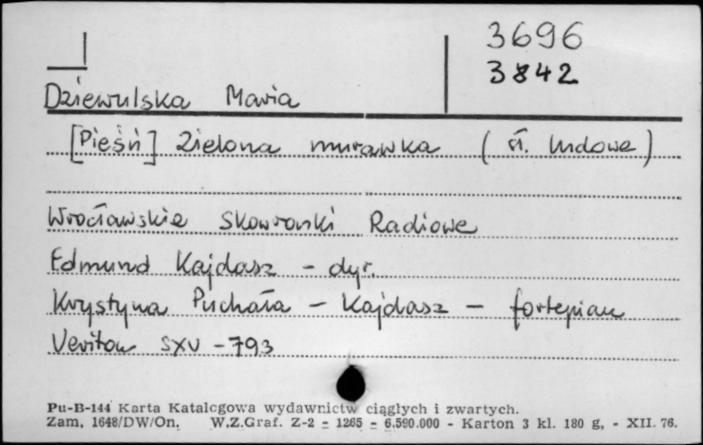 3696
3842
Dziewulska Maria
[Pieśń] Zielona murawka (sł. ludowe)
Wrocławskie Skowronki Radiowe
Edmund Kajdasz - dyr.
Krystyna Puchała - Kajdasz - fortepian
Veriton SXV - 793
Pu-B-144 Karta Katalogowa wydawnictw ciągłych i zwartych.
Zam. 1648/DW/On. W.Z.Graf. Z-2 - 1265 - 6.590.000 - Karton 3 kl. 180 g, - XII. 76.